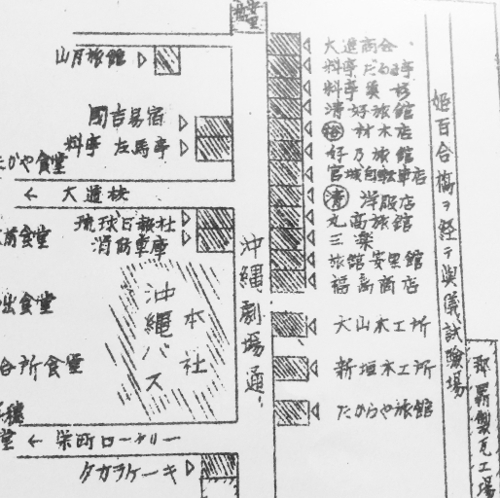 山月旅館
國吉易宿
料亭 左馬亭
かや食堂
← 大道校
琉球日報社
消防車庫
食堂
沖縄バス
本社
出食堂
合所食堂
堂 ← 栄町ロータリー
タカラケーキ
沖縄劇場通り
大進商会
料亭
料亭
清好旅館
材木店
好乃旅館
宮城自転車店
清 洋服店
丸高旅館
三楽
旅館安里館
福島商店
大山木工所
新垣木工所
たからや旅館
姫百合橋ヲ経テ與儀試験場
那覇製瓦工場